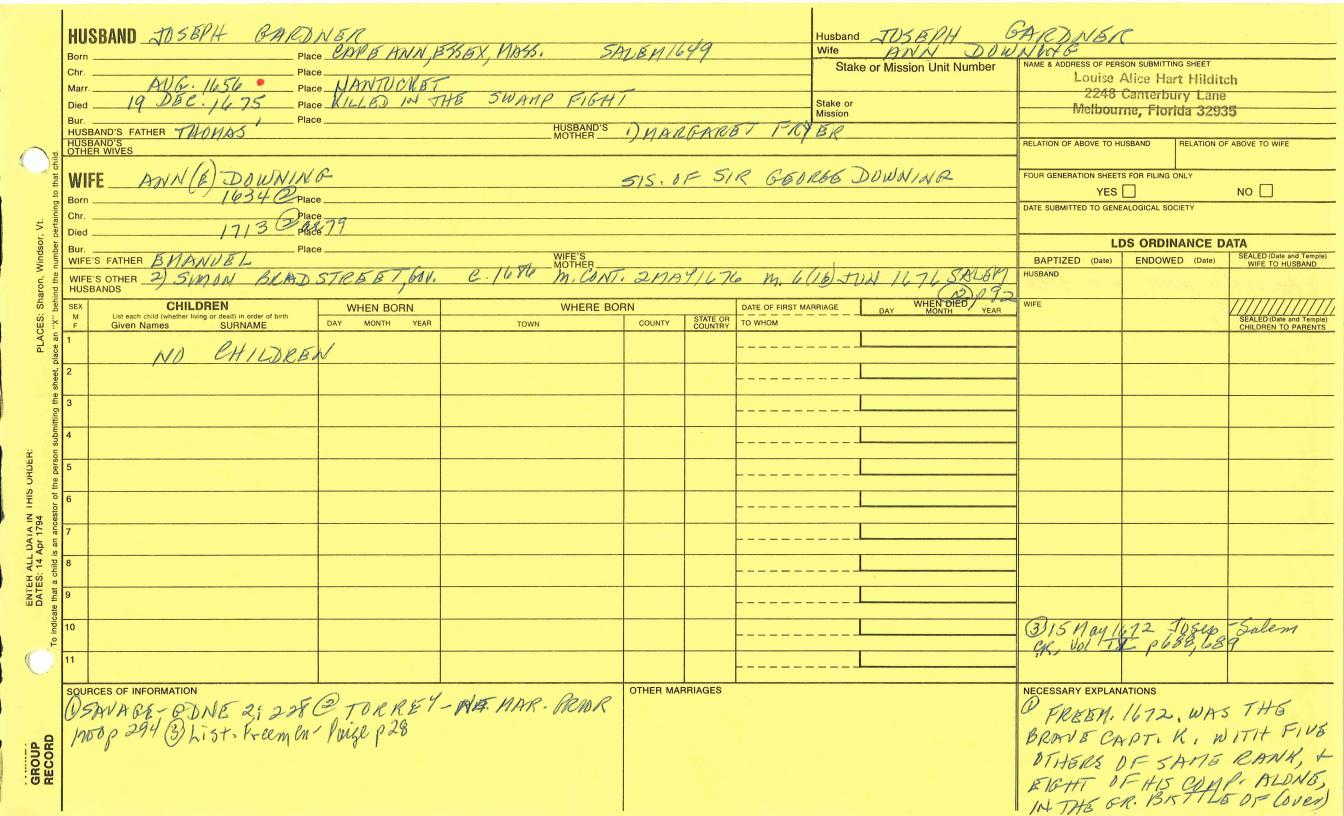 HUSBAND JOSEPH GARDNER
Born Place CAPE ANN, ESSEX, MASS. SALEM 1649
Chr. Place
Marr. AUG. 1656 Place NANTUCKET
Died 19 DEC. 1675 Place KILLED IN THE SWAMP FIGHT
Bur. Place
HUSBAND'S FATHER THOMAS' HUSBAND'S MOTHER 1) MARGARET FRYER
HUSBAND'S OTHER WIVES
Husband JOSEPH GARDNER
Wife ANN DOWNING
Stake or Mission Unit Number
Stake or Mission
NAME & ADDRESS OF PERSON SUBMITTING SHEET
Louise Alice Hart Hilditch
2248 Canterbury Lane
Melbourne, Florida 32935
RELATION OF ABOVE TO HUSBAND RELATION OF ABOVE TO WIFE
FOUR GENERATION SHEETS FOR FILING ONLY
YES NO
DATE SUBMITTED TO GENEALOGICAL SOCIETY
WIFE ANN(E) DOWNING SIS. OF SIR GEORGE DOWNING
Born 1634 ② Place
Chr. Place
Died 1713 ② ae 79 Place
Bur. Place
WIFE'S FATHER EMANUEL WIFE'S MOTHER
WIFE'S OTHER HUSBANDS 2) SIMON BRADSTREET, GOV. M. CONT. 2 MAY 1676 M. 6 JUN 1676 SALEM
② p 92
LDS ORDINANCE DATA
BAPTIZED (Date) ENDOWED (Date) SEALED (Date and Temple) WIFE TO HUSBAND
HUSBAND
WIFE
SEALED (Date and Temple) CHILDREN TO PARENTS
SEX M F
CHILDREN
List each child (whether living or dead) in order of birth
Given Names SURNAME
WHEN BORN
DAY MONTH YEAR
WHERE BORN
TOWN COUNTY STATE OR COUNTRY
DATE OF FIRST MARRIAGE
TO WHOM
WHEN DIED
DAY MONTH YEAR
1 NO CHILDREN
2
3
4
5
6
7
8
9
10
11
③ 15 May 1672 Josep - Salem
CR, Vol p 688, 689
SOURCES OF INFORMATION
① SAVAGE - GDNE 2: 228 ② TORREY - NE MAR. PRIOR
1700 p 294 ③ List. Freemen - Paige p 28
OTHER MARRIAGES
NECESSARY EXPLANATIONS
① FREEM. 1672. WAS THE
BRAVE CAPT. K. WITH FIVE
OTHERS OF SAME RANK, &
EIGHT OF HIS COMP. ALONE,
IN THE GR. BATTLE OF (over)
ENTER ALL DATA IN THIS ORDER:
DATES: 14 Apr 1794 PLACES: Sharon, Windsor, Vt.
To indicate that a child is an ancestor of the person submitting the sheet, place an "X" behind the number pertaining to that child.
GROUP
RECORD